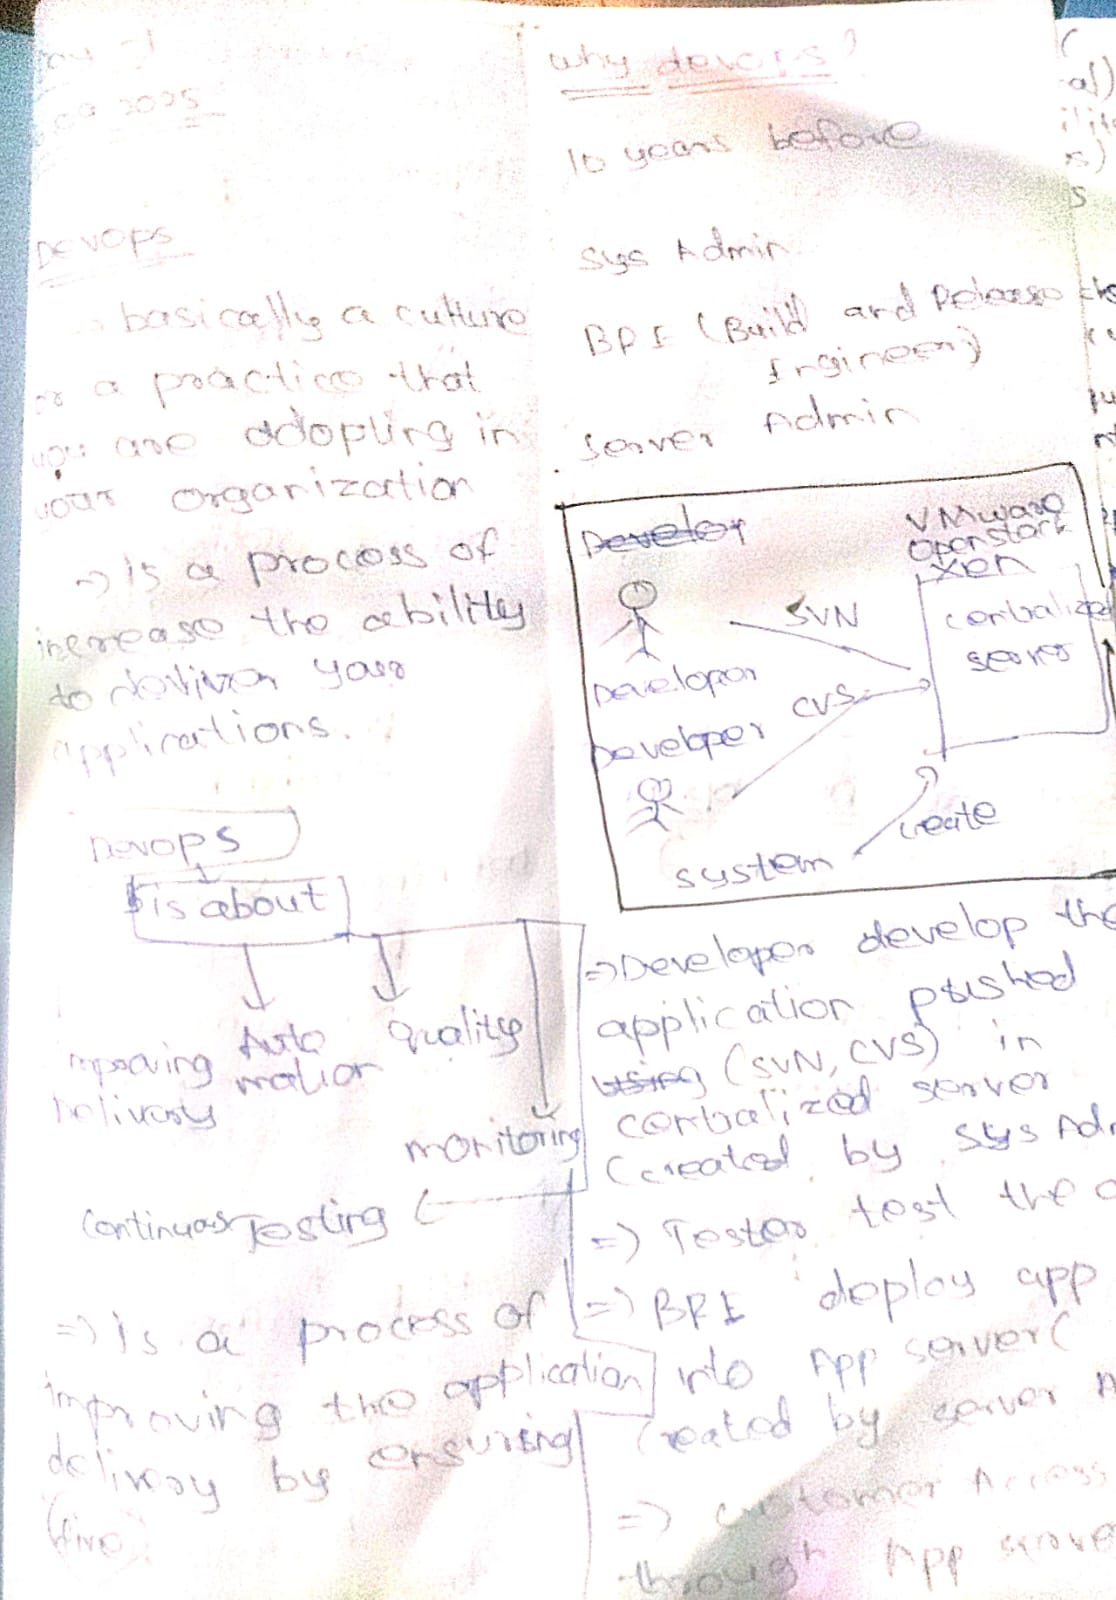 2025
DEVOPS
basically a culture
or a practice that
you are adopting in
your organization
=> is a process of
increase the ability
to deliver your
applications.
Devops
is about
improving Delivery
Automation
Quality
monitoring
Continuous Testing
=> is a process of
improving the application
delivery by ensuring
(five)
why devops?
10 years before
Sys Admin
BRE (Build and Release
Engineer)
Server Admin
Develop
VMware
Openstack
Xen
SVN
centralized
server
Developer
CVS
Developer
create
system
=> Developer develop the
application pushed
using (SVN, CVS) in
centralized server
(created by Sys Adm
=> Tester test the a
=> BRE deploy app
into App server (
created by server A
=> customer Access
through App server